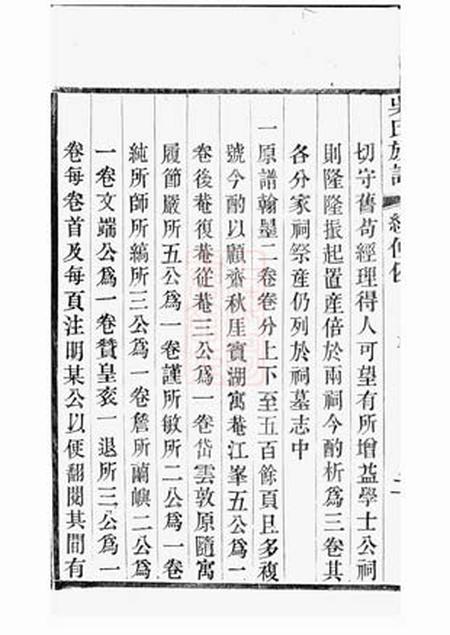 吳氏族譜
切守舊苟經理得人可望有所增益學士公祠
則隆隆振起置產倍於兩祠今酌析爲三卷其
各分家祠祭產仍列於祠墓志中
一原譜翰墨二卷卷分上下至五百餘頁且多複
號今酌以顧齋秋厓寶湖寓菴江峯五公爲一
卷後菴復菴從菴三公爲一卷岱雲敦原隨寓
履節嚴所五公爲一卷謹所敏所二公爲一卷
純所師所縞所三公爲一卷詹所蘭嶼二公爲
一卷文端公爲一卷贊皇衮一退所三公爲一
卷每卷首及每頁注明某公以便翻閱其間有